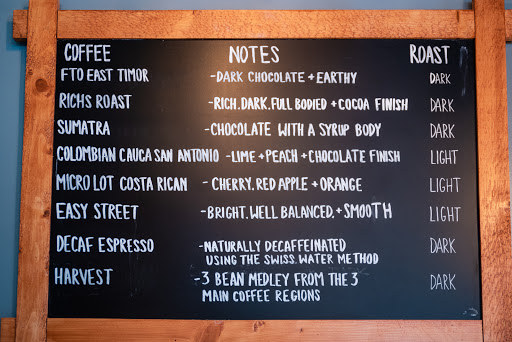 COFFEE NOTES ROAST
FTO EAST TIMOR -DARK CHOCOLATE + EARTHY DARK
RICHS ROAST -RICH.DARK.FULL BODIED + COCOA FINISH DARK
SUMATRA -CHOCOLATE WITH A SYRUP BODY DARK
COLOMBIAN CAUCA SAN ANTONIO -LIME + PEACH + CHOCOLATE FINISH LIGHT
MICRO LOT COSTA RICAN - CHERRY. RED APPLE + ORANGE LIGHT
EASY STREET -BRIGHT. WELL BALANCED. + SMOOTH LIGHT
DECAF ESPRESSO -NATURALLY DECAFFEINATED DARK
USING THE SWISS. WATER METHOD
HARVEST -3 BEAN MEDLEY FROM THE 3 DARK
MAIN COFFEE REGIONS